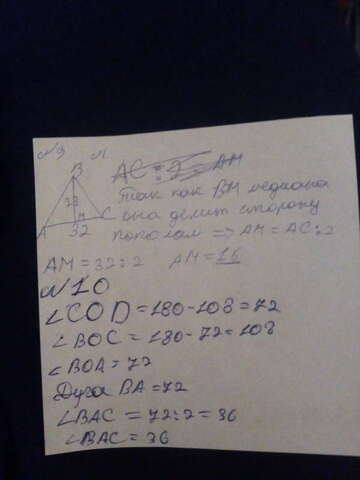 №9
B
A C
M
32
Так как BM медиана
она делит сторону
пополам => AM = AC:2
AM = 32:2 AM = 16
№10
∠COD = 180-108 = 72
∠BOC = 180-72 = 108
∠BOA = 72
Дуга BA = 72
∠BAC = 72:2 = 36
∠BAC = 36